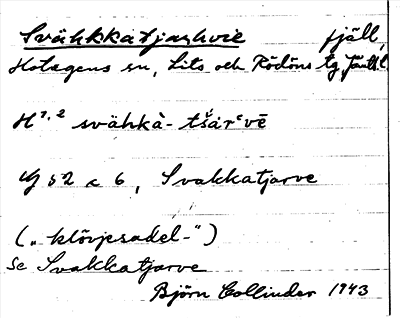 Svähkkatjashvie fjäll,
Hotagens sn, Lits och Rödöns tg, Jämtl.
H¹·² svähkà- tšarᵉvē
G 52 c 6, Svakkatjarve
("klövjesadel-")
Se Svakkatjarve
Björn Collinder 1943